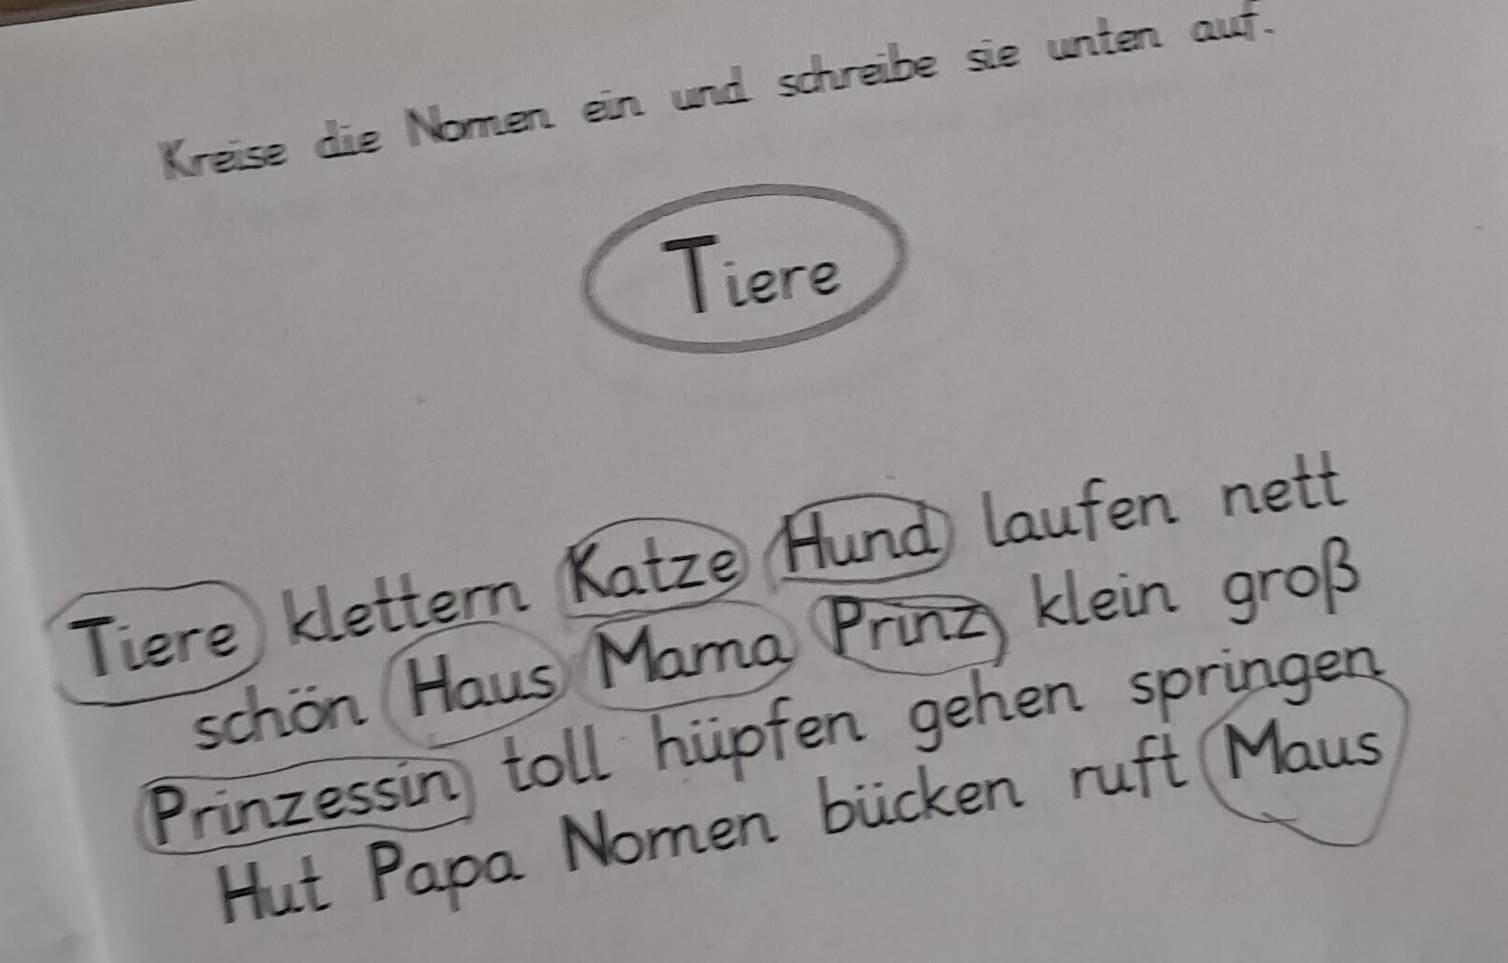 Kreise die Nomen ein und schreibe sie unten auf.
Tiere
Tiere klettern Katze Hund laufen nett
schön Haus Mama Prinz klein groß
Prinzessin toll hüpfen gehen springen
Hut Papa Nomen bücken ruft Maus